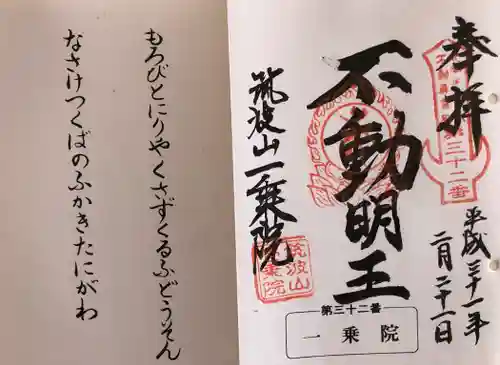 もろびとにりやくさずくるふどうそん
なさけつくばのふかきたにがわ
奉拝
第三十二番
平成三十一年
二月二十一日
不動明王
筑波山一乗院
筑波山
一乗院
第三十二番
一乗院